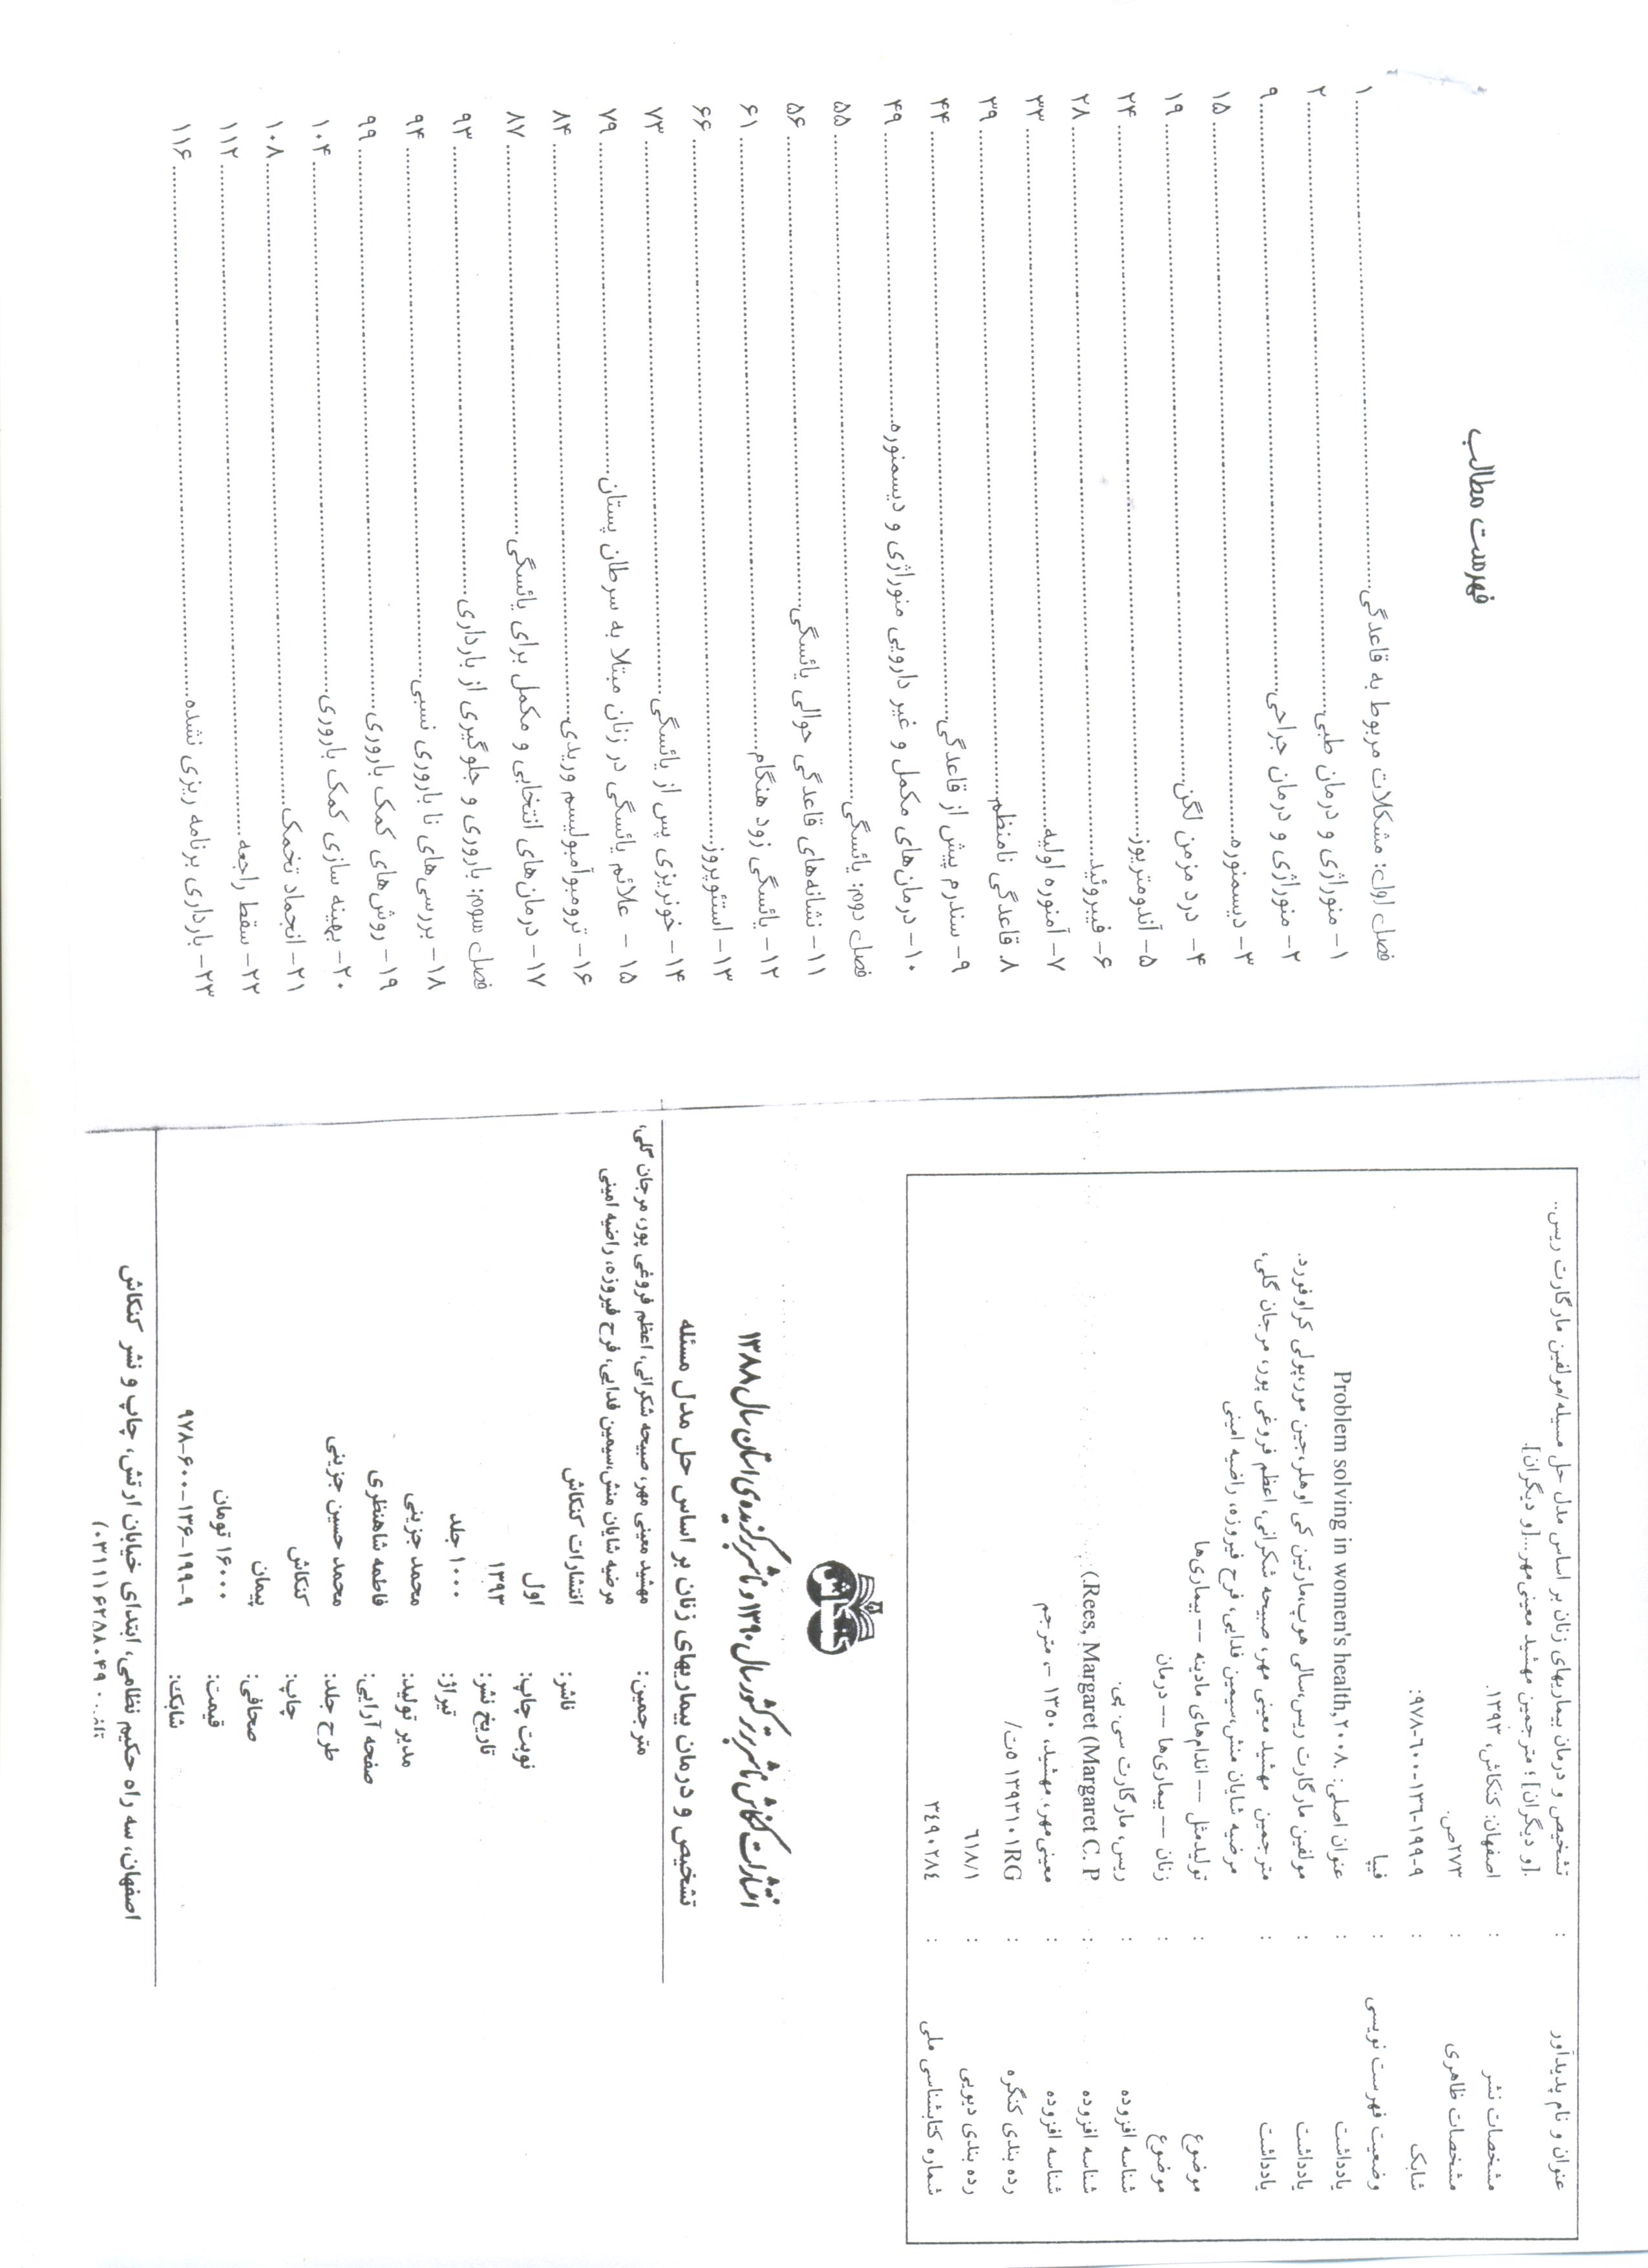 عنوان و نام پدیدآور : تشخیص و درمان بیماریهای زنان بر اساس مدل حل مسیله/مولفین مارگارت ریس...
[و دیگران]؛ مترجمین مهشید معینی‌مهر...[و دیگران].
مشخصات نشر : اصفهان: کنکاش، ۱۳۹۳.
مشخصات ظاهری : ۲۷۳ص.
شابک : ۹۷۸-۶۰۰-۱۳۶-۱۹۹-۹:
وضعیت فهرست نویسی : فیپا
یادداشت : عنوان اصلی: Problem solving in women's health,۲۰۰۸.
یادداشت : مولفین مارگارت ریس،سالی هوپ،مارتین کی اوهلر،جین مور،پولی کراوفورد.
یادداشت : مترجمین مهشید معینی مهر، صبیحه شکرانی، اعظم فروغی پور، مرجان گلی،
مرضیه شایان منش،سیمین فدایی، فرح فیروزه، راضیه امینی
موضوع : تولیدمثل -- اندام‌های مادینه -- بیماری‌ها
موضوع : زنان -- بیماری‌ها -- درمان
شناسه افزوده : ریس، مارگارت سی. پی.
شناسه افزوده : Rees, Margaret (Margaret C. P.)
شناسه افزوده : معینی‌مهر، مهشید، ۱۳۵۰ -، مترجم
رده بندی کنگره : RG۱۰۱/ت۵ ۱۳۹۳
رده بندی دیویی : ۶۱۸/۱
شماره کتابشناسی ملی : ۳۴۹۰۲۸۴
کنکاش
انتشارات کنکاش ناشر برتر کشور سال ۱۳۹۰ و ناشر برگزیده‌ی استان سال ۱۳۸۸
تشخیص و درمان بیماریهای زنان بر اساس حل مدل مسئله
مترجمین: مهشید معینی مهر، صبیحه شکرانی، اعظم فروغی پور، مرجان گلی،
مرضیه شایان منش،سیمین فدایی، فرح فیروزه، راضیه امینی
ناشر: انتشارات کنکاش
نوبت چاپ: اول
تاریخ نشر: ۱۳۹۳
تیراژ: ۱۰۰۰ جلد
مدیر تولید: محمد جزینی
صفحه آرایی: فاطمه شاهنظری
طرح جلد: محمد حسین جزینی
چاپ: کنکاش
صحافی: پیمان
قیمت: ۱۶۰۰۰ تومان
شابک: ۹۷۸-۶۰۰-۱۳۶-۱۹۹-۹
اصفهان، سه راه حکیم نظامی، ابتدای خیابان ارتش، چاپ و نشر کنکاش
فهرست مطالب
فصل اول: مشکلات مربوط به قاعدگی ۱
۱- منوراژی و درمان طبی ۲
۲- منوراژی و درمان جراحی ۹
۳- دیسمنوره ۱۵
۴- درد مزمن لگن ۱۹
۵- آندومتریوز ۲۴
۶- فیبروئید ۲۸
۷- آمنوره اولیه ۳۳
۸. قاعدگی نامنظم ۳۹
۹- سندرم پیش از قاعدگی ۴۴
۱۰- درمان‌های مکمل و غیر دارویی منوراژی و دیسمنوره ۴۹
فصل دوم: یائسگی ۵۵
۱۱- نشانه‌های قاعدگی حوالی یائسگی ۵۶
۱۲- یائسگی زود هنگام ۶۱
۱۳- استئوپروز ۶۶
۱۴- خونریزی پس از یائسگی ۷۳
۱۵ - علائم یائسگی در زنان مبتلا به سرطان پستان ۷۹
۱۶- ترومبوآمبولیسم وریدی ۸۴
۱۷- درمان‌های انتخابی و مکمل برای یائسگی ۸۷
فصل سوم: باروری و جلوگیری از بارداری ۹۳
۱۸- بررسی‌های نا باروری نسبی ۹۴
۱۹- روش‌های کمک باروری ۹۹
۲۰- بهینه سازی کمک باروری ۱۰۴
۲۱- انجماد تخمک ۱۰۸
۲۲- سقط راجعه ۱۱۲
۲۳- بارداری برنامه ریزی نشده ۱۱۶